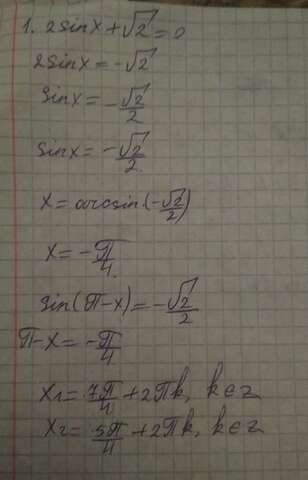 1. 2sinx+√2=0
2sinx=-√2
sinx=-√2/2
sinx=-√2/2.
x=arcsin(-√2/2)
x=-π/4.
sin(π-x)=-√2/2
π-x=-π/4
x₁=7π/4+2πk, k∈z
x₂=5π/4+2πk, k∈z